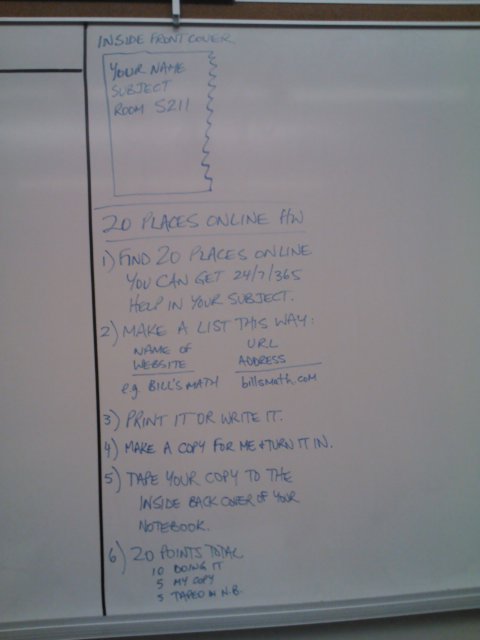 INSIDE FRONT COVER
YOUR NAME
SUBJECT
ROOM 5211
20 PLACES ONLINE HW
1) FIND 20 PLACES ONLINE
YOU CAN GET 24/7/365
HELP IN YOUR SUBJECT.
2) MAKE A LIST THIS WAY:
NAME OF WEBSITE
URL ADDRESS
e.g. BILL'S MATH billsmath.com
3) PRINT IT OR WRITE IT.
4) MAKE A COPY FOR ME + TURN IT IN.
5) TAPE YOUR COPY TO THE
INSIDE BACK COVER OF YOUR
NOTEBOOK.
6) 20 POINTS TOTAL
10 DOING IT
5 MY COPY
5 TAPED IN N.B.